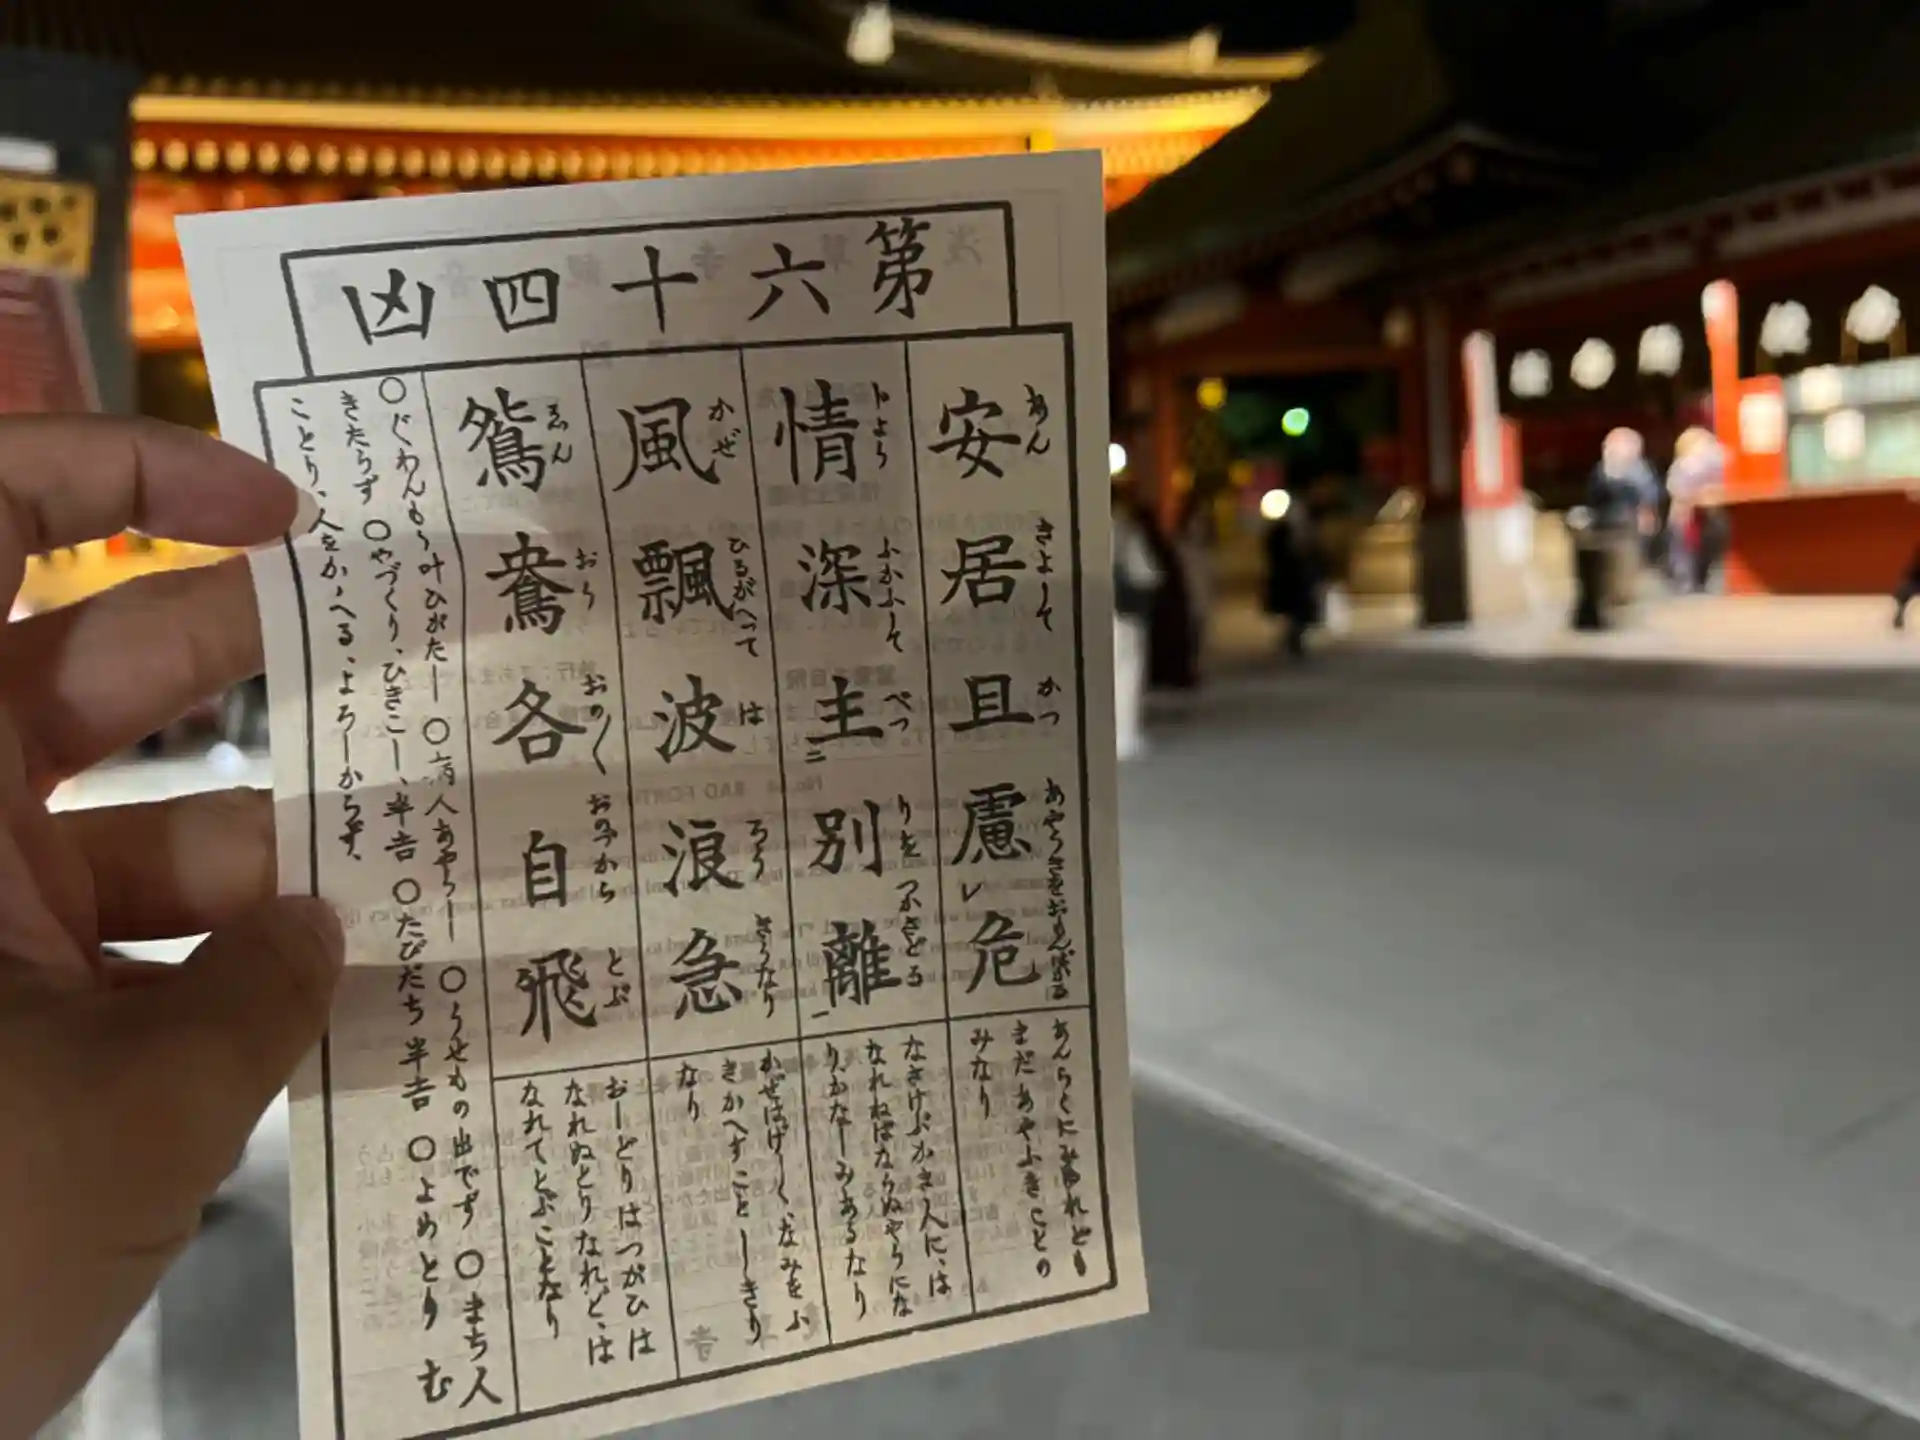 第六十四凶
安居且慮レ危
あん きよして かつ あやうきをおもんばかる
あんらくにみゆれども
まだあやふきことの
みなり
情深主二別離一
ふかふして べつ りを つかさどる
なさけぶかき人には
なれねばならぬやうにな
りかなしみあるなり
風飄波浪急
かぜ ひるがへつて は ろう きうなり
かぜはげしく、なみをふ
きかへすことしきり
なり
鴛鴦各自飛
ゑん おう おの〱 おのづから とぶ
おしどりはつがひは
なれぬとりなれど、は
なれてとぶことなり
○ぐわんもう叶ひがたし ○病人あやうし ○うせもの出でず ○まち人
きたらず ○やづくり、ひきこし、半吉 ○たびだち半吉 ○よめとり むこ
ことり、人をかゝへる、よろしからず、